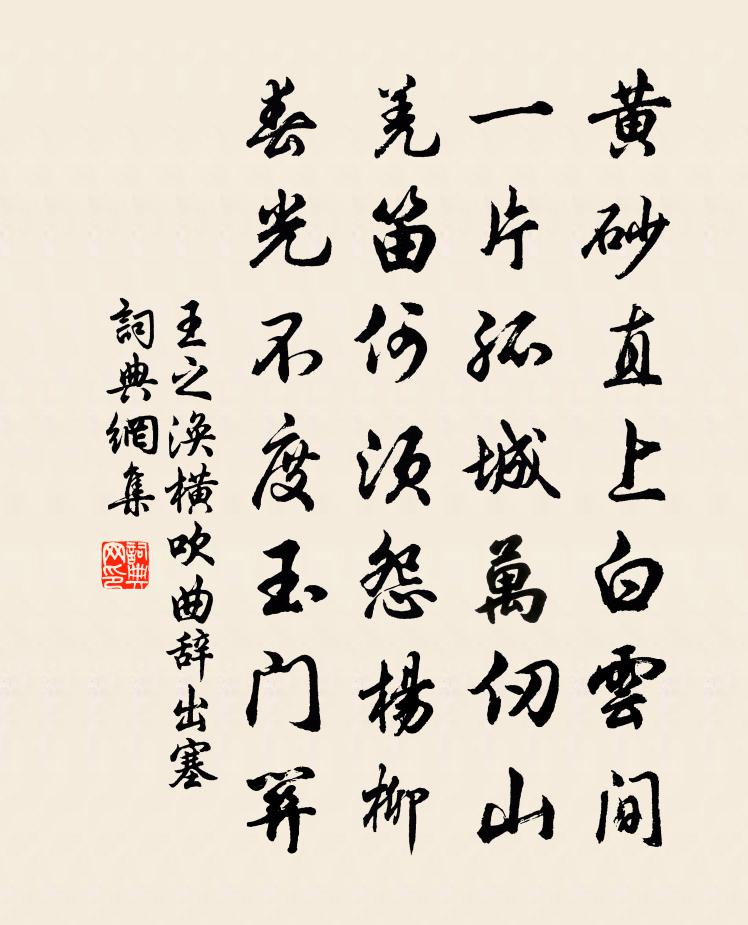 黄砂直上白雲间
一片孤城萬仞山
羌笛何须怨楊柳
春光不度玉门関
王之渙横吹曲辞出塞
詞典網集
詞典网印